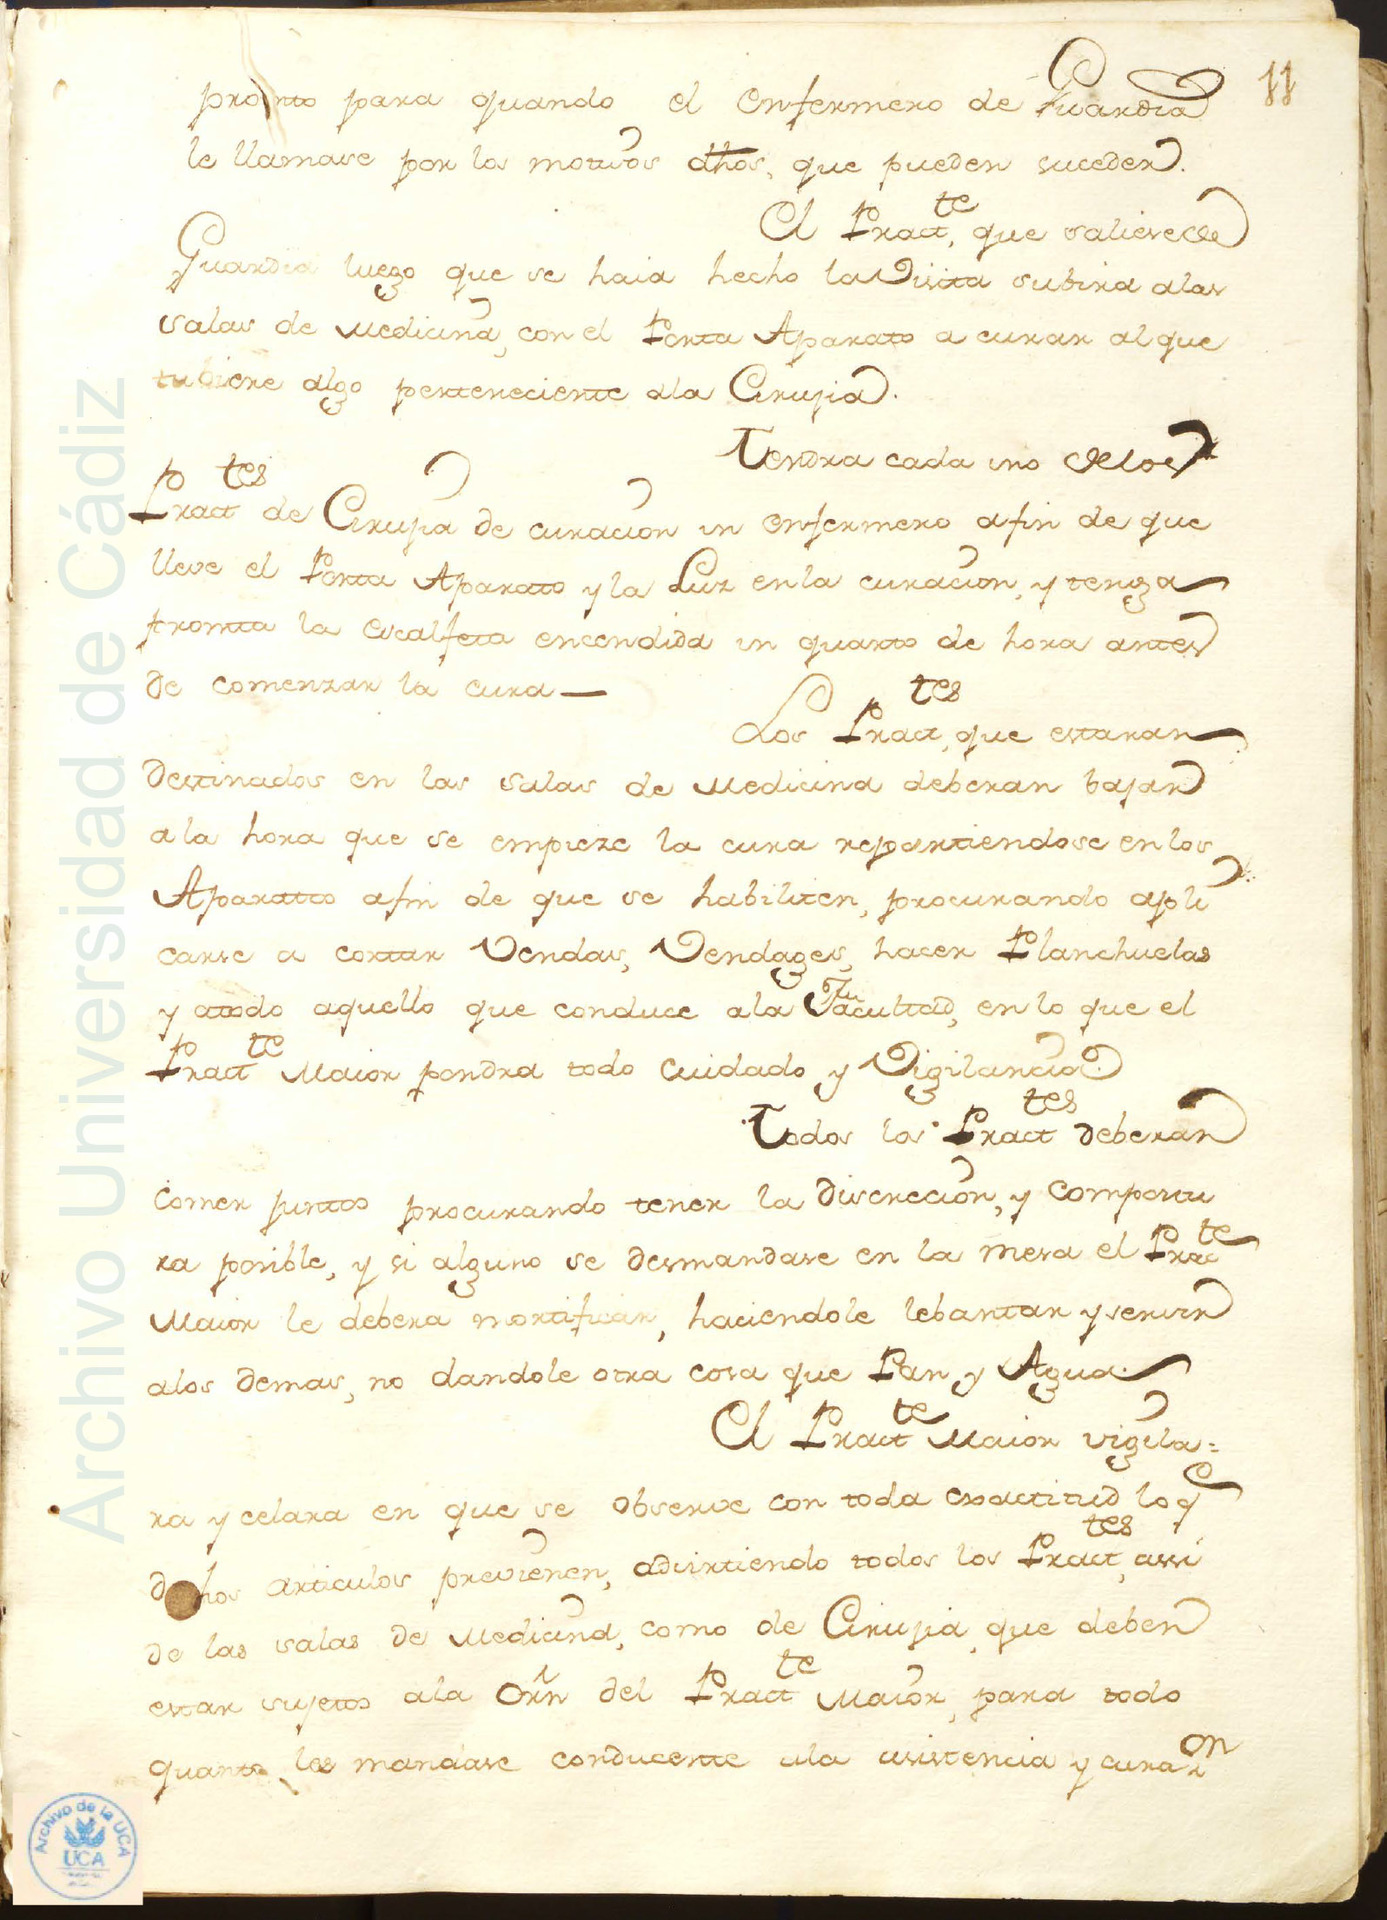 11
pronto para quando el enfermero de Guardia
le llamase por los motivos dhos, que pueden suceder.
El Practte, que saliere de
Guardia luego que se haia hecho la Visita subira alas
salas de Medicina, con el Porta Aparato a curar al que
tubiere algo perteneciente ala Cirujia.
Tendra cada uno delos
Practtes de Cirujia de curacion un enfermero afin de que
lleve el Porta Aparato y la Luz en la curacion, y tenga
prompta la escalfeta encendida un quarto de hora antes
de comenzar la cura—
Los Practtes, que estaran
destinados en las salas de Medicina deberan bajar
a la hora que se empieze la cura repartiendose en los
Aparattos afin de que se habiliten, procurando apli
carse a cortar Vendas, Vendages, hacer Planchuelas
y atodo aquello que conduce ala Facultad, en lo que el
Practte Maior pondra todo cuidado y Vigilancia.
Todos los Practtes deberan
comer juntos procurando tener la discrecion, y compostu
ra posible, y si alguno se desmandase en la mesa el Practe
Maior le debera mortificar, haciendole lebantar y servir
alos demas, no dandole otra cosa que Pan y Agua.
El Practte Maior vigila=
ra y celara en que se observe con toda exactitud lo q
dchos articulos previenen, advirtiendo todos los Practtes, assi
de las salas de Medicina, como de Cirujia, que deben
estar sujetos ala Orn del Practte Maior, para todo
quanto les mandase conducente ala asistencia y curaon
Archivo Universidad de Cádiz
Archivo de la UCA
UCA